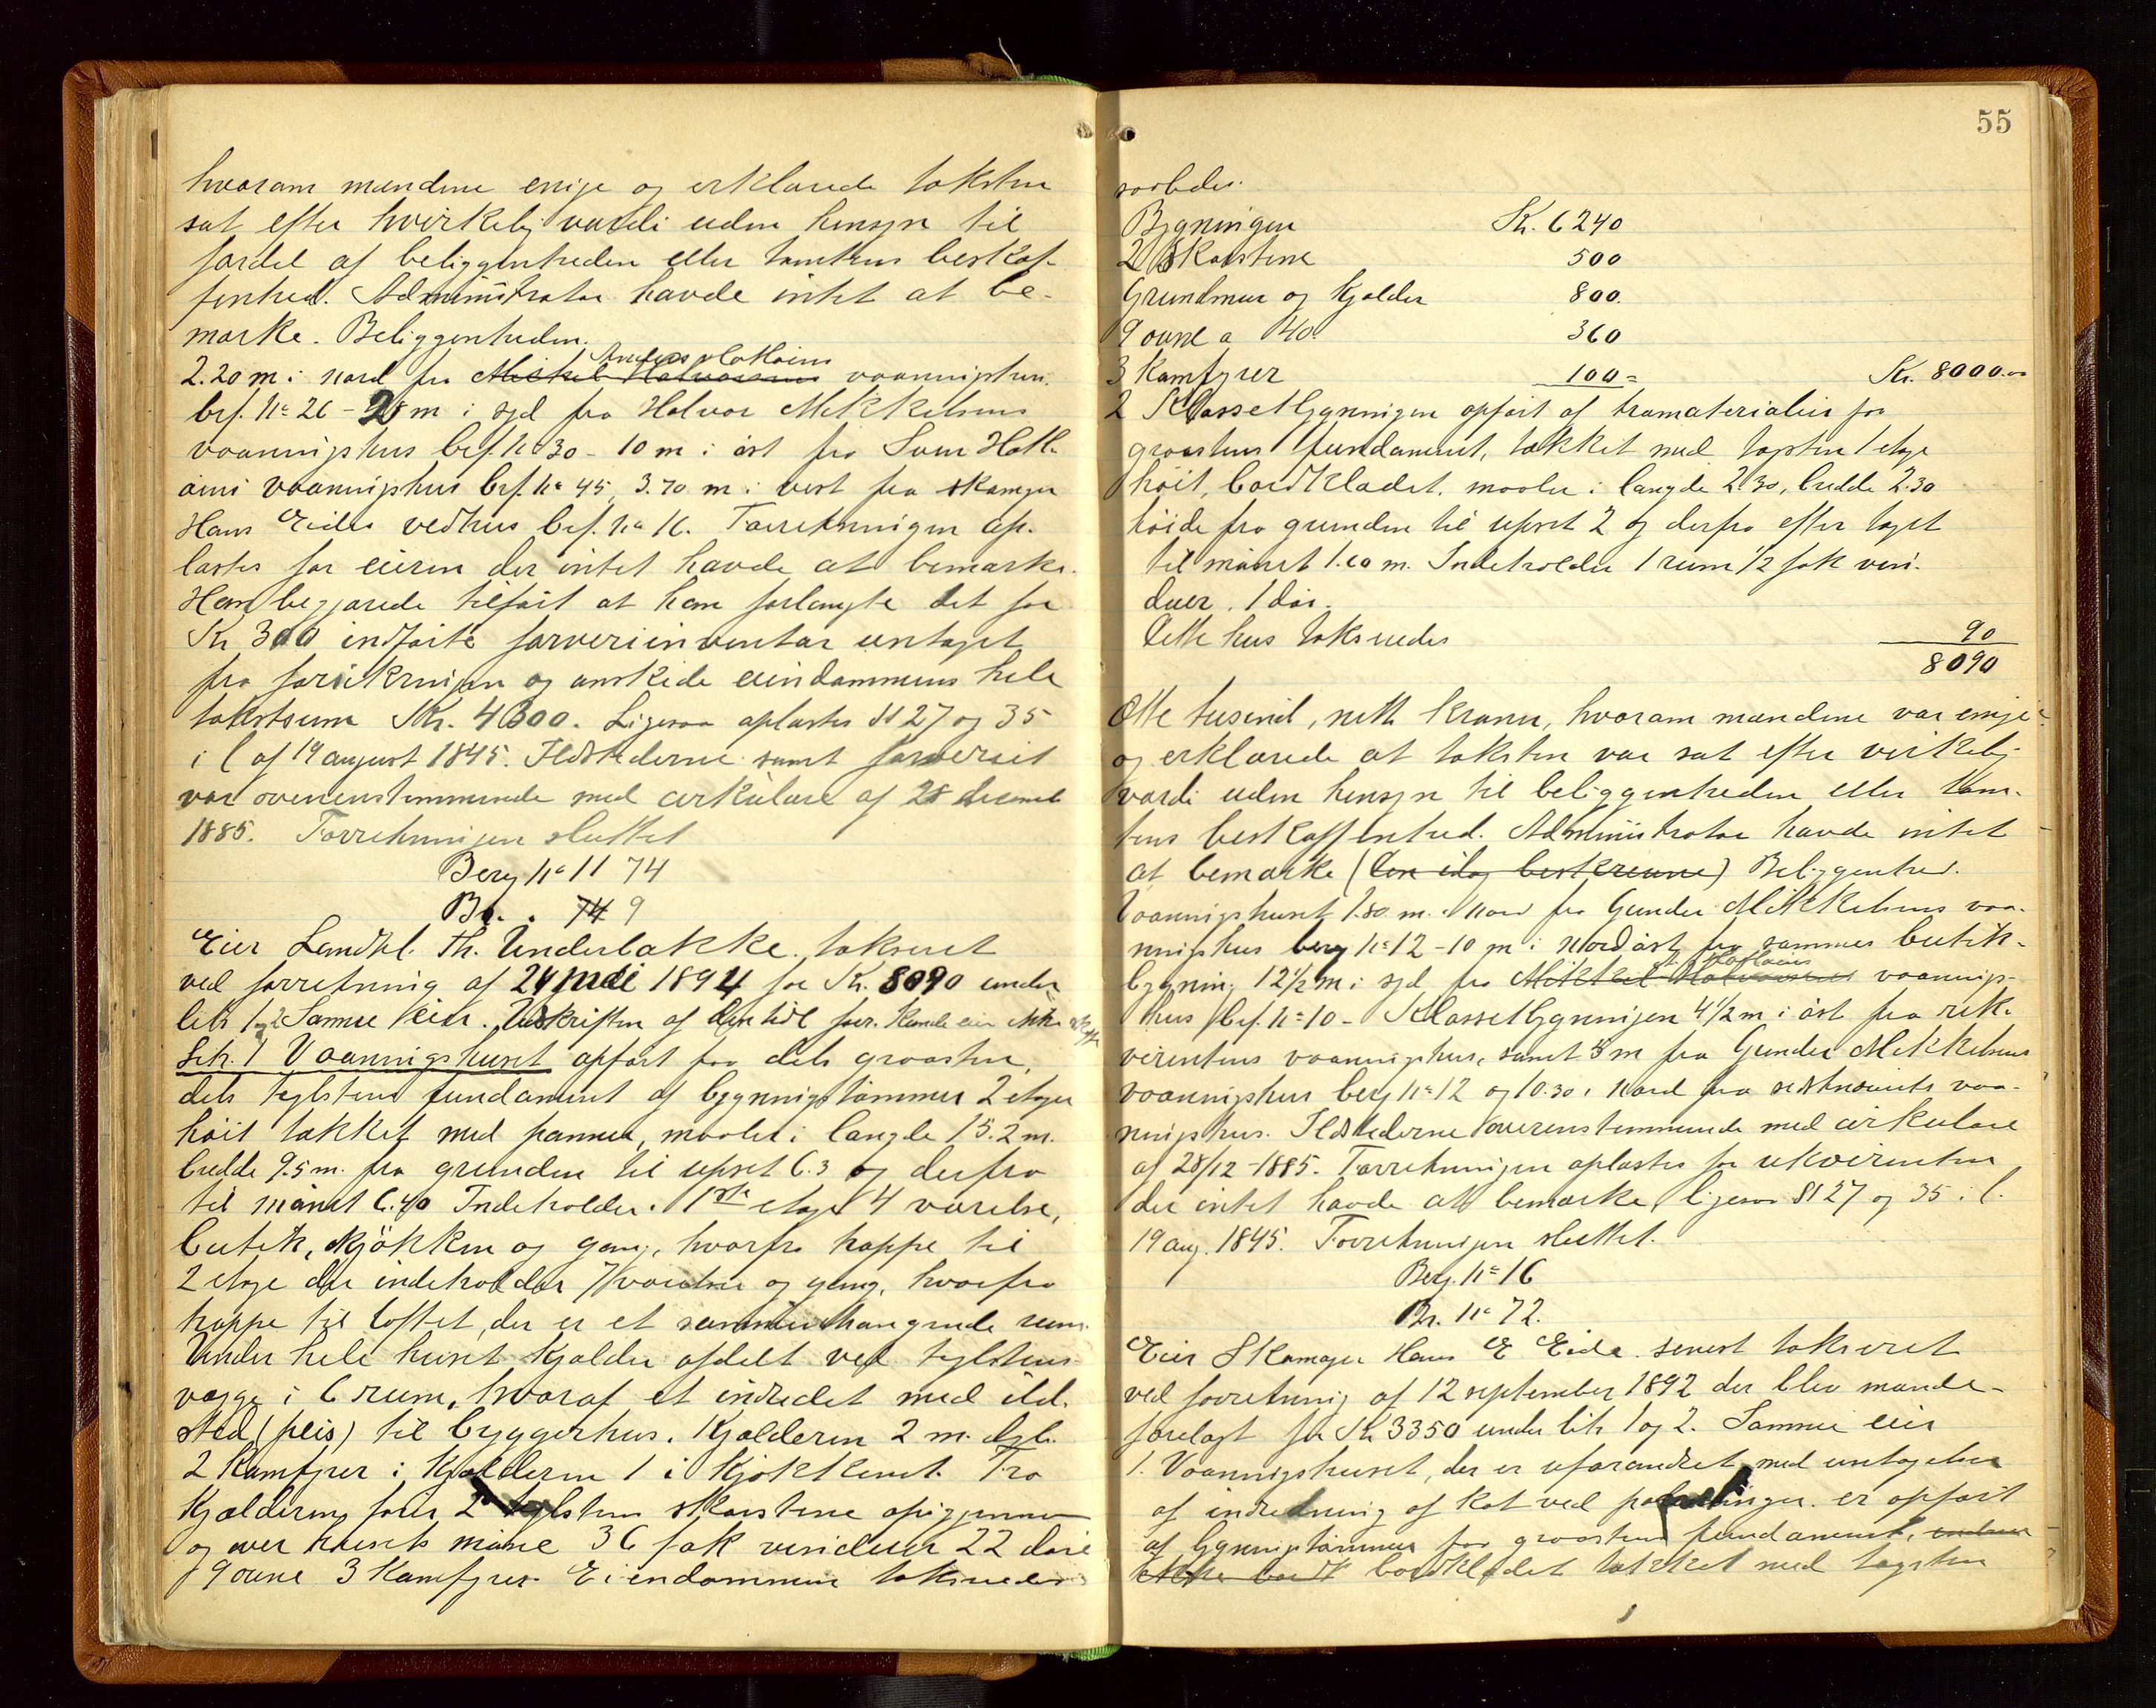 hvorom mændene enige og erklærede taksten
sat efter hvirkelig værdi uden hensyn til
fordel af beliggenheden eller tomtens beskaf-
fenhed. Administrator havde intet at be-
mærke. Beliggenheden.
Anders Hatleims
2.20 m i nord fra Mickel Halvorsens vaaningshus.
brf. No 26 - 28 m i syd fra Halvor Mikkelsens
vaaningshus brf. No 30 - 10 m i øst fra Hatle-
vaaningshus brf. No 45, 3.70 m i vest fra skomager
Hans Eides vedhus brf. No 16. Forretningen op-
læstes for eieren der intet havde at bemærke.
Han begjærede tilført at han forlangte det for
Kr 300 indførte farveriinventar untaget
fra forsikringen og ønskede eiendommens hele
takstsum Kr. 4300. Ligesaa oplæstes §§ 27 og 35
i l af 19 august 1845. Ildstederne samt farveriet
var overenstemmende med cirkulære af 28 decemb
1885. Forretningen sluttet
Berg No 11 74
Br. " 74 9
Eier Landhl. Th. Underbakke. takseret
ved forretning af 24 mai 1894 for Kr. 8090 under
litr 1 og 2 Samme eier. Udskriften af den tidl forr. kunde eier ikke skaffe
Litr. 1 Vaaningshuset opført paa dels graasten,
dels teglstens fundament af bygningstømmer 2 etager
høit tækket med panner, maaler i længde 15.2 m.
bredde 9.5 m. fra grunden til upset 6.3 og derfra
til mønet 6.40 Indeholder i 1ste etage 4 værelse,
butik, kjøkken og gang, hvorfra trappe til
2 etage der indeholder 7 værelse og gang, hvorfra
trappe til loftet, der er et sammenhængende rum.
Under hele huset kjælder afdelt ved teglstens-
vægge i 6 rum, hvoraf et indredet med ild-
sted (peis) til bryggerhus. Kjælderen 2 m. dyb.
2 Kamfyrer i Kjælderen 1 i Kjøkkenet. Fra
Kjælderen fører 2 teglstens skorstene opigjennem
og over husets møne 36 fak vinduer 22 døre
9 ovne 3 Kamfyrer. Eiendommen takseredes
55
saaledes.
Bygningen Kr. 6240
2 Skorstene 500
Grundmur og Kjælder 800.
9 ovne a 40. 360
3 Kamfyrer 100= Kr. 8000.00
2 Klosetbygningen opført af træmaterialier paa
graastens fundament, tækket med tagsten 1 etage
høit, bordklædet. maaler i længde 2.30, bredde 2.30
høide fra grunden til upset 2 og derfra efter taget
til mønet 1.60 m. Indeholder 1 rum 1/2 fak vin-
duer. 1 dør.
Dette hus takseredes 90
8090
Otte tusend, nitti kroner, hvorom mændene var enige
og erklærede at taksten var sat efter virkelig
værdi uden hensyn til beliggenheden eller tom-
tens beskaffenhed. Administrator havde intet
at bemærke (Den idag beskrevne) Beliggenhed.
Vaaningshuset 1.80 m. i nord fra Gunder Mikkelsens vaa-
ningshus berg No 12 - 10 m i nordøst fra sammes butik-
Hatleims
bygning 12 1/2 m i syd fra Mikkel Halvorsens vaanings-
hus brf. No 10 - Klosetbygningen 4 1/2 m i øst fra rek-
virentens vaaningshus, samt 5 m fra Gunder Mikkelsens
vaaningshus berg No 12 og 10.30 i nord fra sidstnævnte vaa-
ningshus. Ildstederne overenstemmende med cirkulære
af 28/12 - 1885. Forretningen oplæstes for rekvirenten
der intet havde at bemærke, ligesaa §§ 27 og 35 i l.
19 aug. 1845. Forretningen sluttet.
Berg. No 16
Br. No 72.
Eier Skomager Hans E Eide. senest takseret
ved forretning af 12 september 1892 der blev mænde-
forelagt for Kr 3350 under litr 1 og 2. Samme eier
1. Vaaningshuset, der er uforandret med untagelse
af indredning af kot ved er opført
af bygningstømmer paa graastens fundament,
bordklædet tækket med tagsten